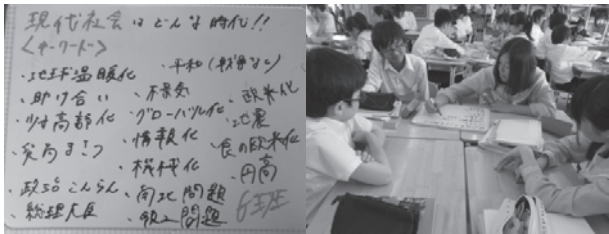 現代社会はどんな時代!!
<キーワード>
・地球温暖化 ・平和(戦争なし)
・助け合い ・不景気 ・欧米化
・少子高齢化 ・グローバル化 ・地震
・情報化 ・食の欧米化
・機械化 ・円高
・政治こんらん ・南北問題 6班
・総理大臣 ・領土問題